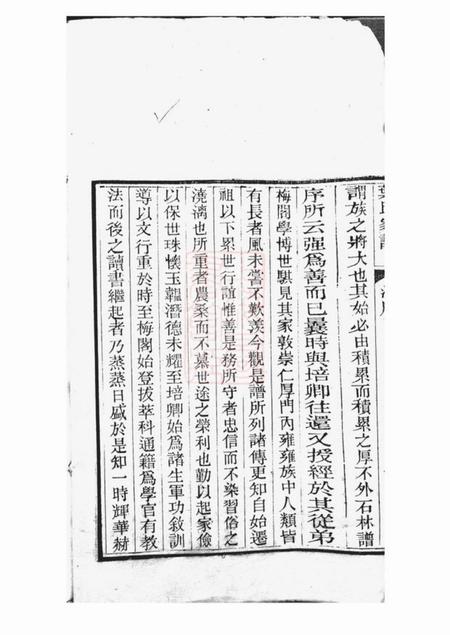 葉氏家譜
謂族之將大也其始必由積累而積累之厚不外石林譜
序所云强為善而已曩時與培卿往還又授經於其從弟
梅閣學博世騏見其家敦崇仁厚門內雍雍族中人類皆
有長者風未嘗不歎羨今觀是譜所列諸傳更知自始遷
祖以下累世行誼惟善是務所守者忠信而不染習俗之
澆漓也所重者農桑而不慕世途之榮利也勤以起家儉
以保世珠懷玉韞潛德未耀至培卿始為諸生軍功敘訓
導以文行重於時至梅閣始登拔萃科通籍為學官有教
法而後之讀書繼起者乃蒸蒸日盛於是知一時輝華赫